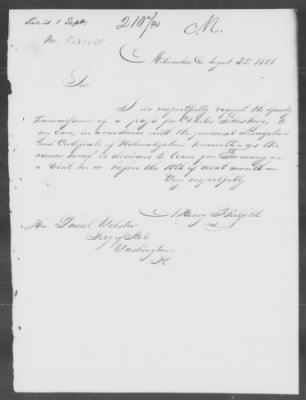 Rec'd 1 Sept.
210 M.
Mr.
Milwaukee August 25. 1851
Sir
I do respectfully request the speedy
transmission of a pass for Charles to
my care, in accordance with the personal description
and Certificate of Naturalization herewith as the
owner hereof is desirous to leave for Germany on
a visit on or before the 10th of next month
Very respectfully
Henry
Hon Daniel Webster
Secy of State
Washington